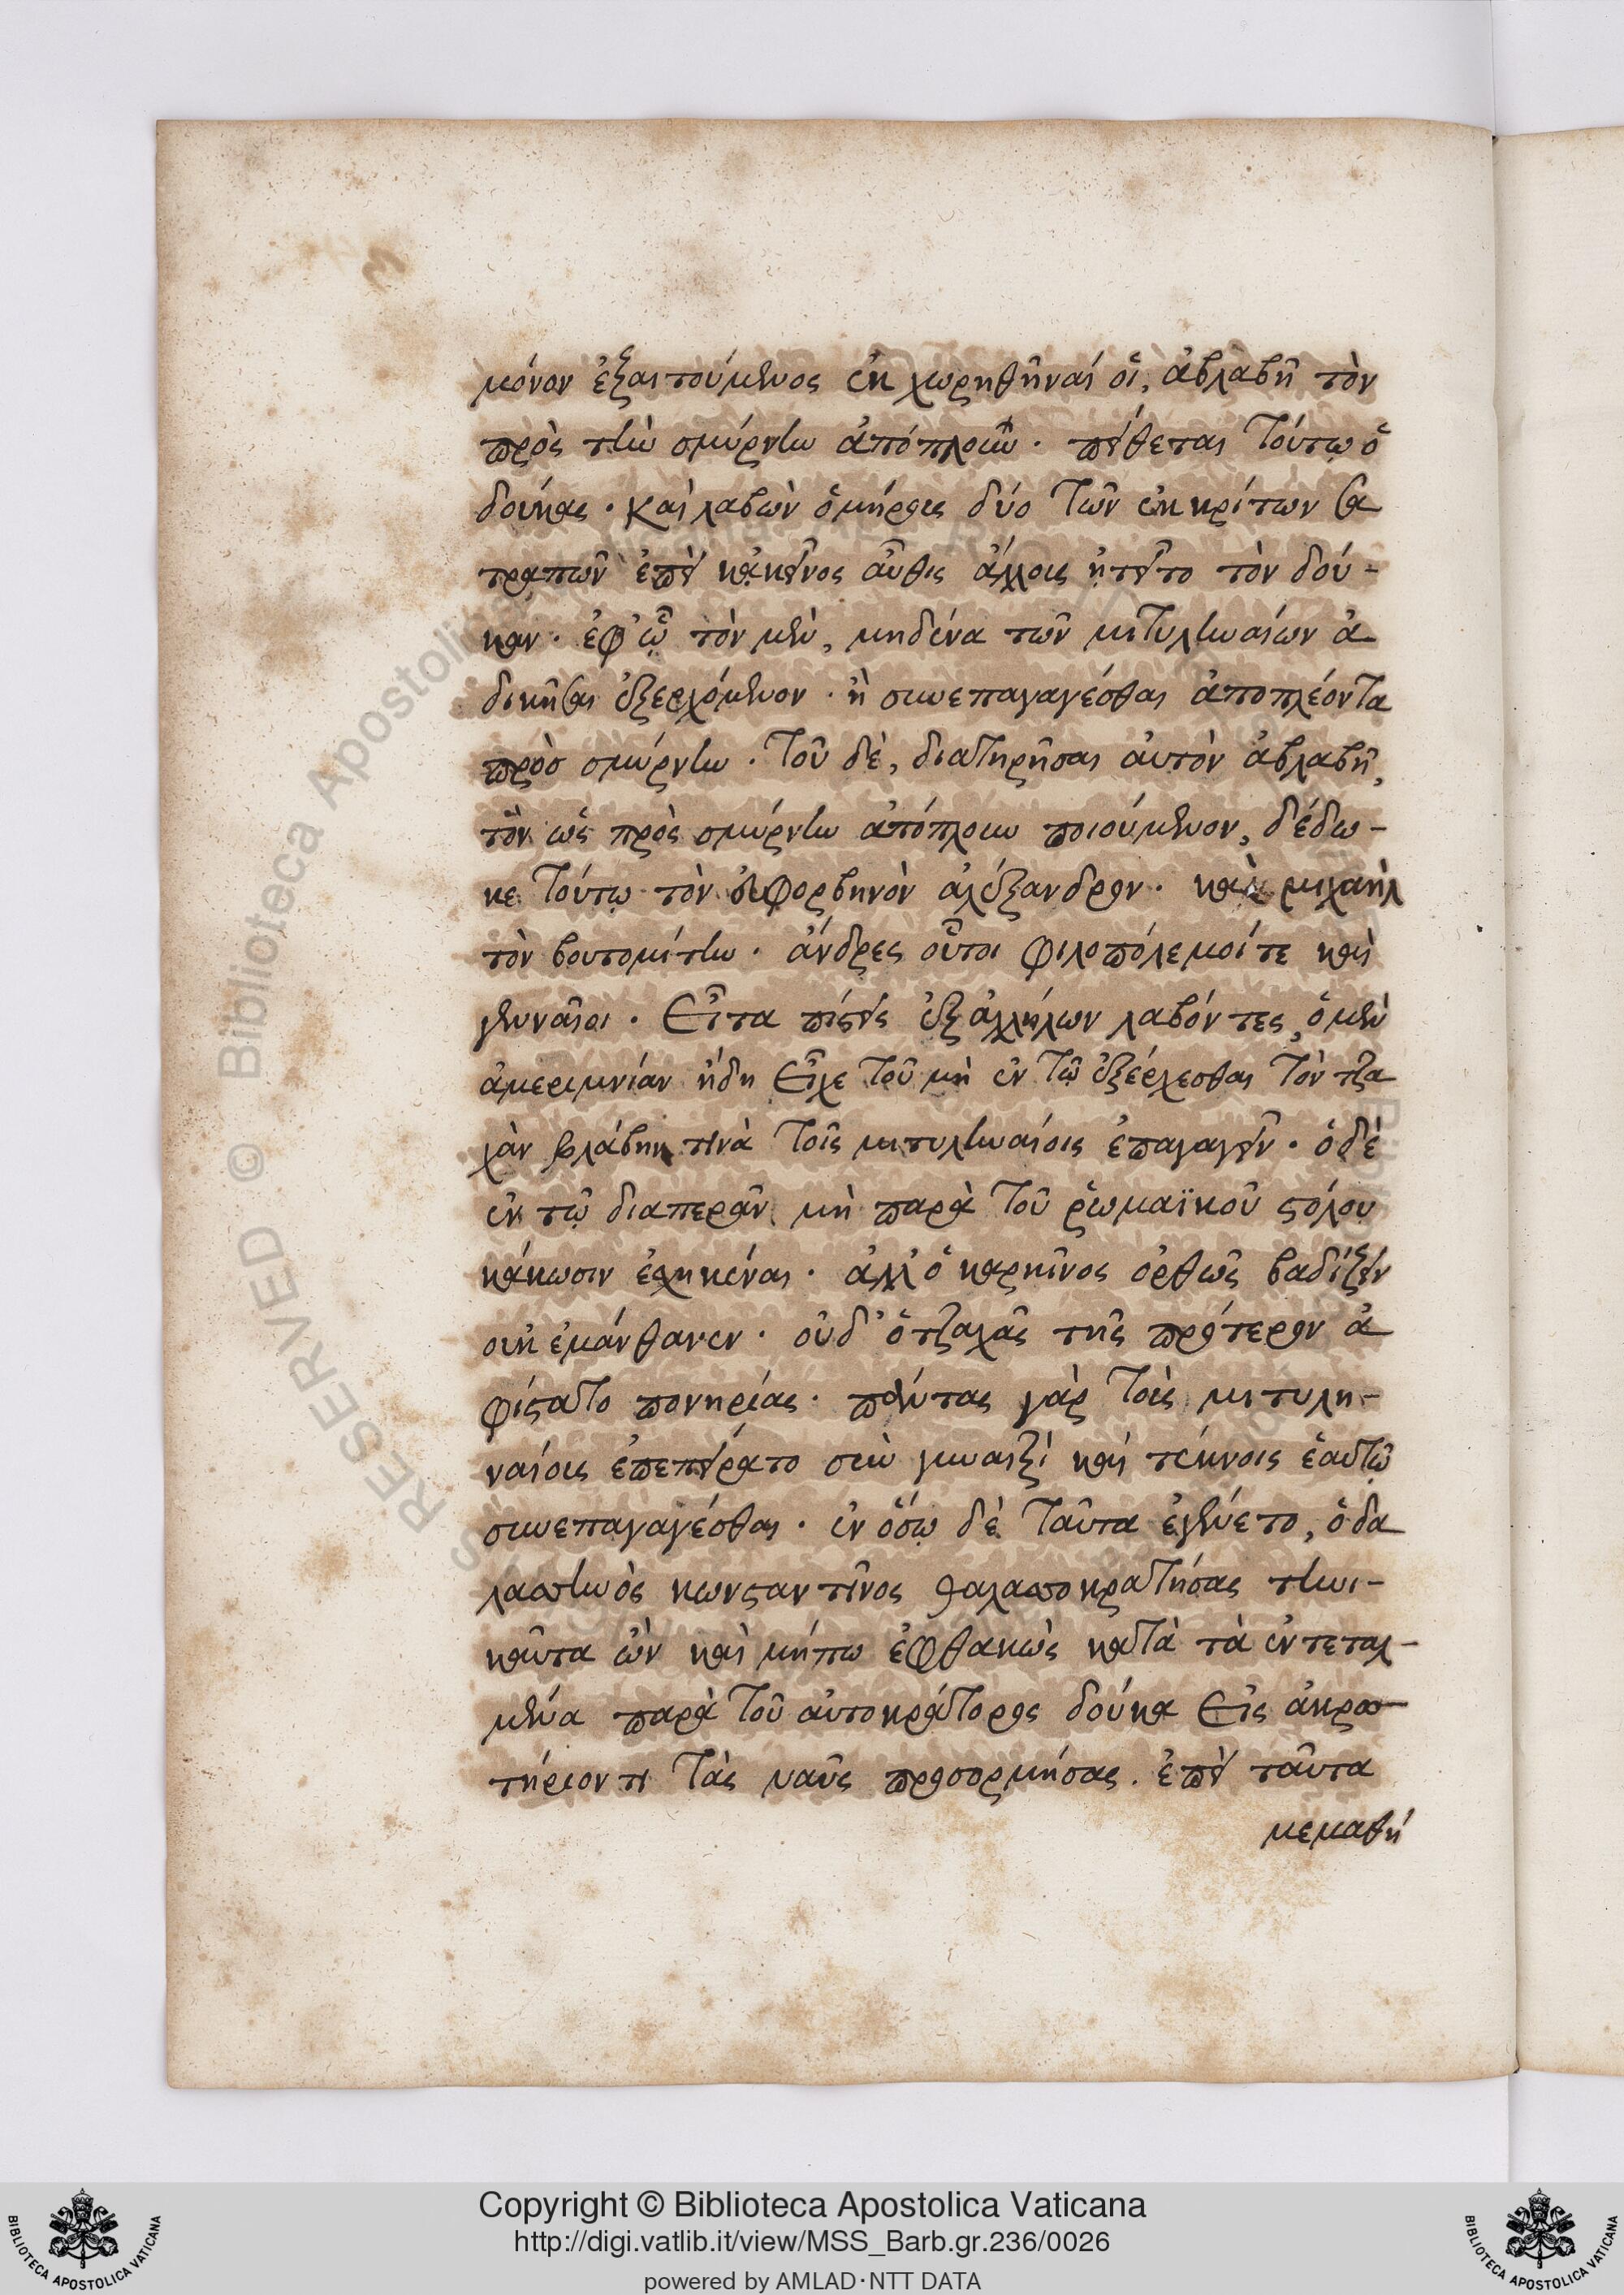 μόνον ἐξαιτούμενος ἐκχωρηθῆναί οἱ, ἀβλαβῆ τὸν
πρὸς τὴν σμύρνην ἀπόπλοιων. πείθεται τούτῳ ὁ
δούκας. καὶ λαβὼν ὁμήρους δύο τῶν ἐκκρίτων σα
τραπῶν ἐπεὶ κἀκεῖνος αὖθις ἄλλοις ᾐτεῖτο τὸν δού-
καν. ἐφ' ᾧ τὸν μὲν, μηδένα τῶν μιτυληναίων ἀ
δικῆσαι ἐξερχόμενον. ἢ συνεπαγαγέσθαι ἀποπλέοντα
πρὸσ σμύρνην. τοῦ δὲ, διατηρῆσαι αὐτὸν ἀβλαβῆ,
τὸν ὡς πρὸς σμύρνην ἀπόπλοιων ποιούμενον, δέδω-
κε τούτῳ τὸν εὐφορβηνὸν ἀλέξανδρον. καὶ μιχαὴλ
τὸν βουτομίτην. ἄνδρες οὗτοι φιλοπόλεμοί τε καὶ
γενναῖοι. Εἶτα πίστεις ἐξ ἀλλήλων λαβόντες, ὁ μὲν
ἀμεριμνίαν ἤδη Εἶχε τοῦ μὴ ἐν τῷ ἐξέρχεσθαι τὸν τζα
χὰν βλάβην τινὰ τοῖς μιτυληναίοις ἐπαγαγεῖν. ὁ δὲ
ἐν τῷ διαπερᾶν μὴ παρὰ τοῦ ῥωμαϊκοῦ στόλου
κάκωσιν ἐσχηκέναι. ἀλλ' ὁ καρκῖνος ὀρθῶς βαδίζειν
οὐκ ἐμάνθανεν. οὐδ' ὁ τζαχᾶς τῆς πρότερον ἀ
φίστατο πονηρίας. πάντας γὰρ τοὺς μιτυλη-
ναίους ἐπεπείρατο σὺν γυναιξὶ καὶ τέκνοις ἑαυτῷ
συνεπαγαγέσθαι. ἐν ὅσῳ δὲ ταῦτα ἐγένετο, ὁ δα
λασσηνὸς κωνσταντῖνος θαλασσοκρατήσας την-
καῦτα ὢν καὶ μήπω ἐφθακὼς κατὰ τὰ ἐντεταλ-
μένα παρὰ τοῦ αὐτοκράτορος δούκα Εἰς ἀκρω-
τήριον τι τὰς ναῦς προσορμήσας. ἐπεὶ ταῦτα
μεμαθή
Copyright © Biblioteca Apostolica Vaticana
http://digi.vatlib.it/view/MSS_Barb.gr.236/0026
powered by AMLAD·NTT DATA